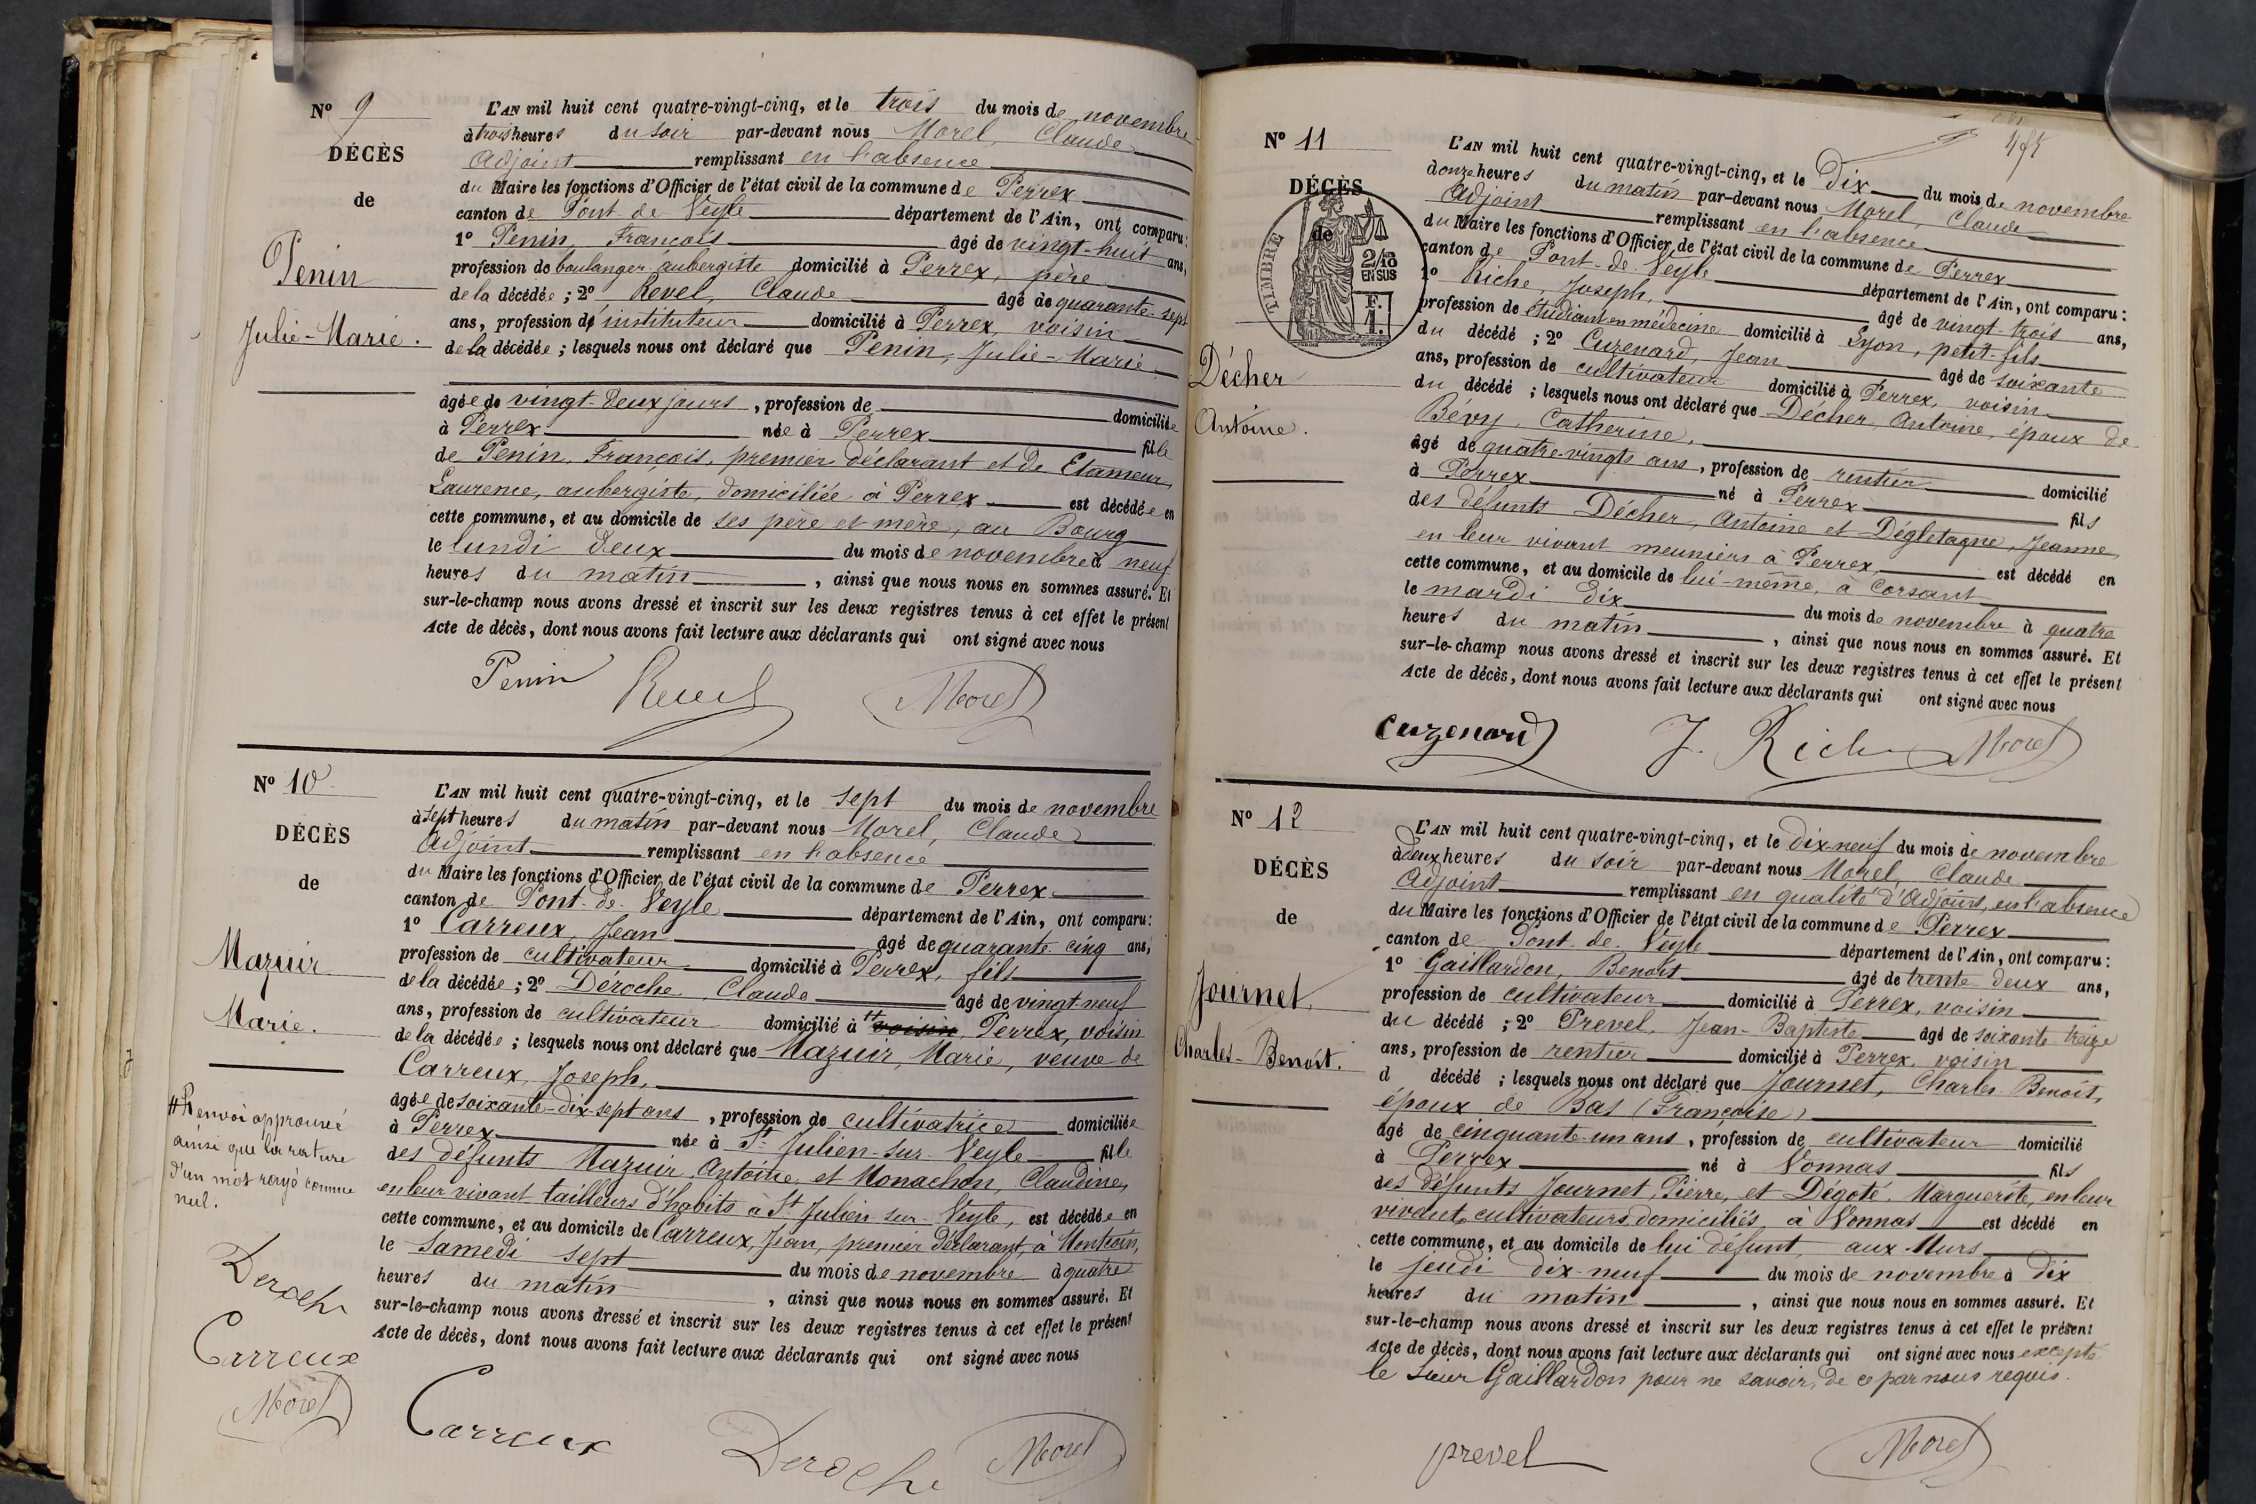 N° 9
DÉCÈS
de
Penin
Julie-Marie.
L'AN mil huit cent quatre-vingt-cinq, et le trois du mois de novembre
à trois heures du soir par-devant nous Morel, Claude
Adjoint remplissant en l'absence
du Maire les fonctions d'Officier de l'état civil de la commune de Perrex
canton de Pont-de-Veyle département de l'Ain, ont comparu:
1° Penin, François âgé de vingt-huit ans,
profession de boulanger aubergiste domicilié à Perrex, père
de la décédée; 2° Revel, Claude âgé de quarante-sept
ans, profession d'instituteur domicilié à Perrex, voisin
de la décédée; lesquels nous ont déclaré que Penin, Julie-Marie
âgée de vingt-deux jours, profession de domiciliée
à Perrex née à Perrex fille
de Penin, François, premier déclarant et de Etameur,
Laurence, aubergiste, domiciliée à Perrex est décédée en
cette commune, et au domicile de ses père et mère, au Bourg
le lundi deux du mois de novembre à neuf
heures du matin, ainsi que nous nous en sommes assuré. Et
sur-le-champ nous avons dressé et inscrit sur les deux registres tenus à cet effet le présent
Acte de décès, dont nous avons fait lecture aux déclarants qui ont signé avec nous
Penin Revel Morel
N° 10
DÉCÈS
de
Mazuir
Marie.
# Renvoi approuvé
ainsi que la rature
d'un mot rayé comme
nul.
Deroche
Carreux
Morel
L'AN mil huit cent quatre-vingt-cinq, et le sept du mois de novembre
à sept heures du matin par-devant nous Morel, Claude
Adjoint remplissant en l'absence
du Maire les fonctions d'Officier de l'état civil de la commune de Perrex
canton de Pont-de-Veyle département de l'Ain, ont comparu:
1° Carreux, Jean âgé de quarante-cinq ans,
profession de cultivateur domicilié à Perrex, fils
de la décédée; 2° Déroche, Claude âgé de vingt-neuf
ans, profession de cultivateur domicilié à # voisin Perrex, voisin
de la décédée; lesquels nous ont déclaré que Mazuir, Marie, veuve de
Carreux, Joseph,
âgée de soixante-dix-sept ans, profession de cultivatrice domiciliée
à Perrex née à St Julien-sur-Veyle fille
des défunts Mazuir Antoine, et Monachon, Claudine,
en leur vivant tailleurs d'habits à St Julien-sur-Veyle, est décédée en
cette commune, et au domicile de Carreux, Jean, premier déclarant, à
le samedi sept du mois de novembre à quatre
heures du matin, ainsi que nous nous en sommes assuré. Et
sur-le-champ nous avons dressé et inscrit sur les deux registres tenus à cet effet le présent
Acte de décès, dont nous avons fait lecture aux déclarants qui ont signé avec nous
Carreux Deroche Morel
N° 11
DÉCÈS
de
TIMBRE
2/10
EN SUS
F.
1.
Décher
Antoine.
L'AN mil huit cent quatre-vingt-cinq, et le Dix du mois de novembre
à onze heures du matin par-devant nous Morel, Claude
Adjoint remplissant en l'absence
du Maire les fonctions d'Officier de l'état civil de la commune de Perrex
canton de Pont-de-Veyle département de l'Ain, ont comparu:
1° Riche, Joseph, âgé de vingt-trois ans,
profession de étudiant en médecine domicilié à Lyon, petit-fils
du décédé; 2° Cuzenard, Jean âgé de soixante
ans, profession de cultivateur domicilié à Perrex, voisin
du décédé; lesquels nous ont déclaré que Décher, Antoine, époux de
Bévy, Catherine,
âgé de quatre-vingts ans, profession de rentier domicilié
à Perrex né à Perrex fils
des défunts Décher, Antoine et Dégletagne, Jeanne,
en leur vivant meuniers à Perrex est décédé en
cette commune, et au domicile de lui-même, à Corsant
le mardi dix du mois de novembre à quatre
heures du matin, ainsi que nous nous en sommes assuré. Et
sur-le-champ nous avons dressé et inscrit sur les deux registres tenus à cet effet le présent
Acte de décès, dont nous avons fait lecture aux déclarants qui ont signé avec nous
Cuzenard J. Riche Morel
N° 12
DÉCÈS
de
Journet
Charles-Benoît.
L'AN mil huit cent quatre-vingt-cinq, et le dix-neuf du mois de novembre
à deux heures du soir par-devant nous Morel, Claude
Adjoint remplissant en qualité d'Adjoint, en l'absence
du Maire les fonctions d'Officier de l'état civil de la commune de Perrex
canton de Pont-de-Veyle département de l'Ain, ont comparu:
1° Gaillardon, Benoît âgé de trente-deux ans,
profession de cultivateur domicilié à Perrex, voisin
du décédé; 2° Prevel, Jean-Baptiste âgé de soixante-treize
ans, profession de rentier domicilié à Perrex, voisin
d décédé; lesquels nous ont déclaré que Journet, Charles-Benoît,
époux de Bas (Françoise)
âgé de cinquante-un ans, profession de cultivateur domicilié
à Perrex né à Vonnas fils
des défunts Journet, Pierre, et Dégoté, Marguerite, en leur
vivant, cultivateurs domiciliés, à Vonnas est décédé en
cette commune, et au domicile de lui défunt, aux Murs
le jeudi dix-neuf du mois de novembre à dix
heures du matin, ainsi que nous nous en sommes assuré. Et
sur-le-champ nous avons dressé et inscrit sur les deux registres tenus à cet effet le présent
Acte de décès, dont nous avons fait lecture aux déclarants qui ont signé avec nous excepté
le sieur Gaillardon pour ne savoir, de ce par nous requis.
prevel Morel